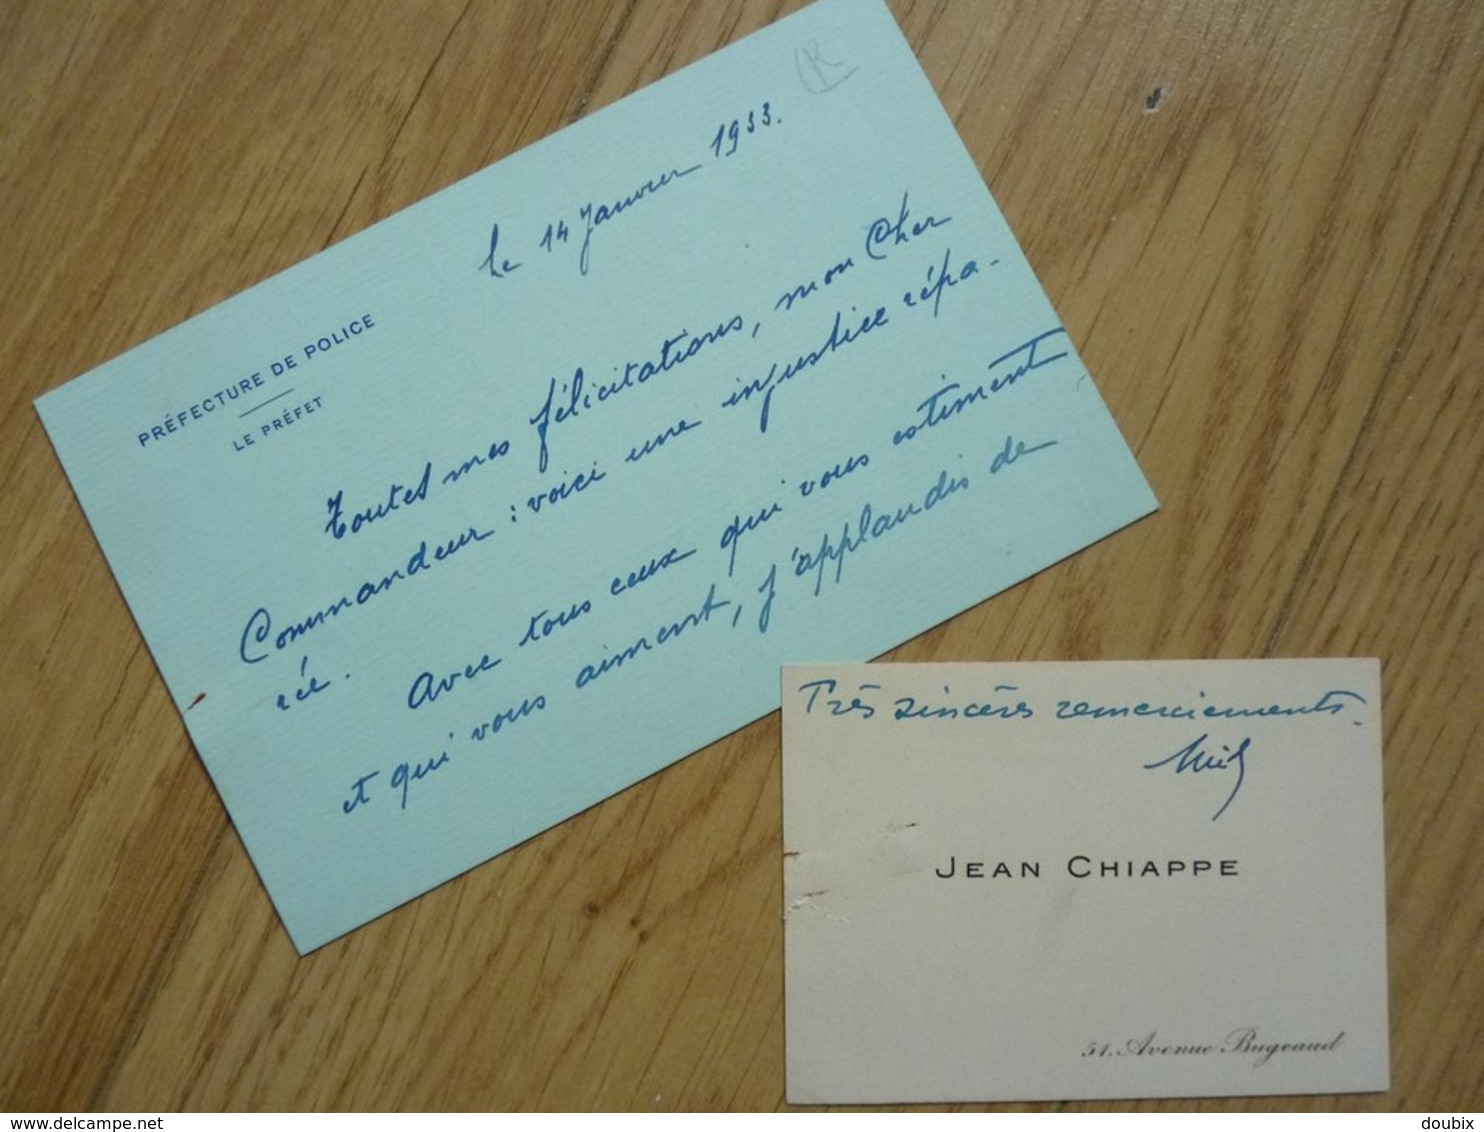 PRÉFECTURE DE POLICE
LE PRÉFET
Le 14 Janvier 1933.
Toutes mes félicitations, mon Cher
Commandeur : voici une injustice répa-
rée. Avec tous ceux qui vous estiment
et qui vous aiment, j'applaudis de
Très sincères remerciements.
JEAN CHIAPPE
51, Avenue Bugeaud
delcampe.net
doubix